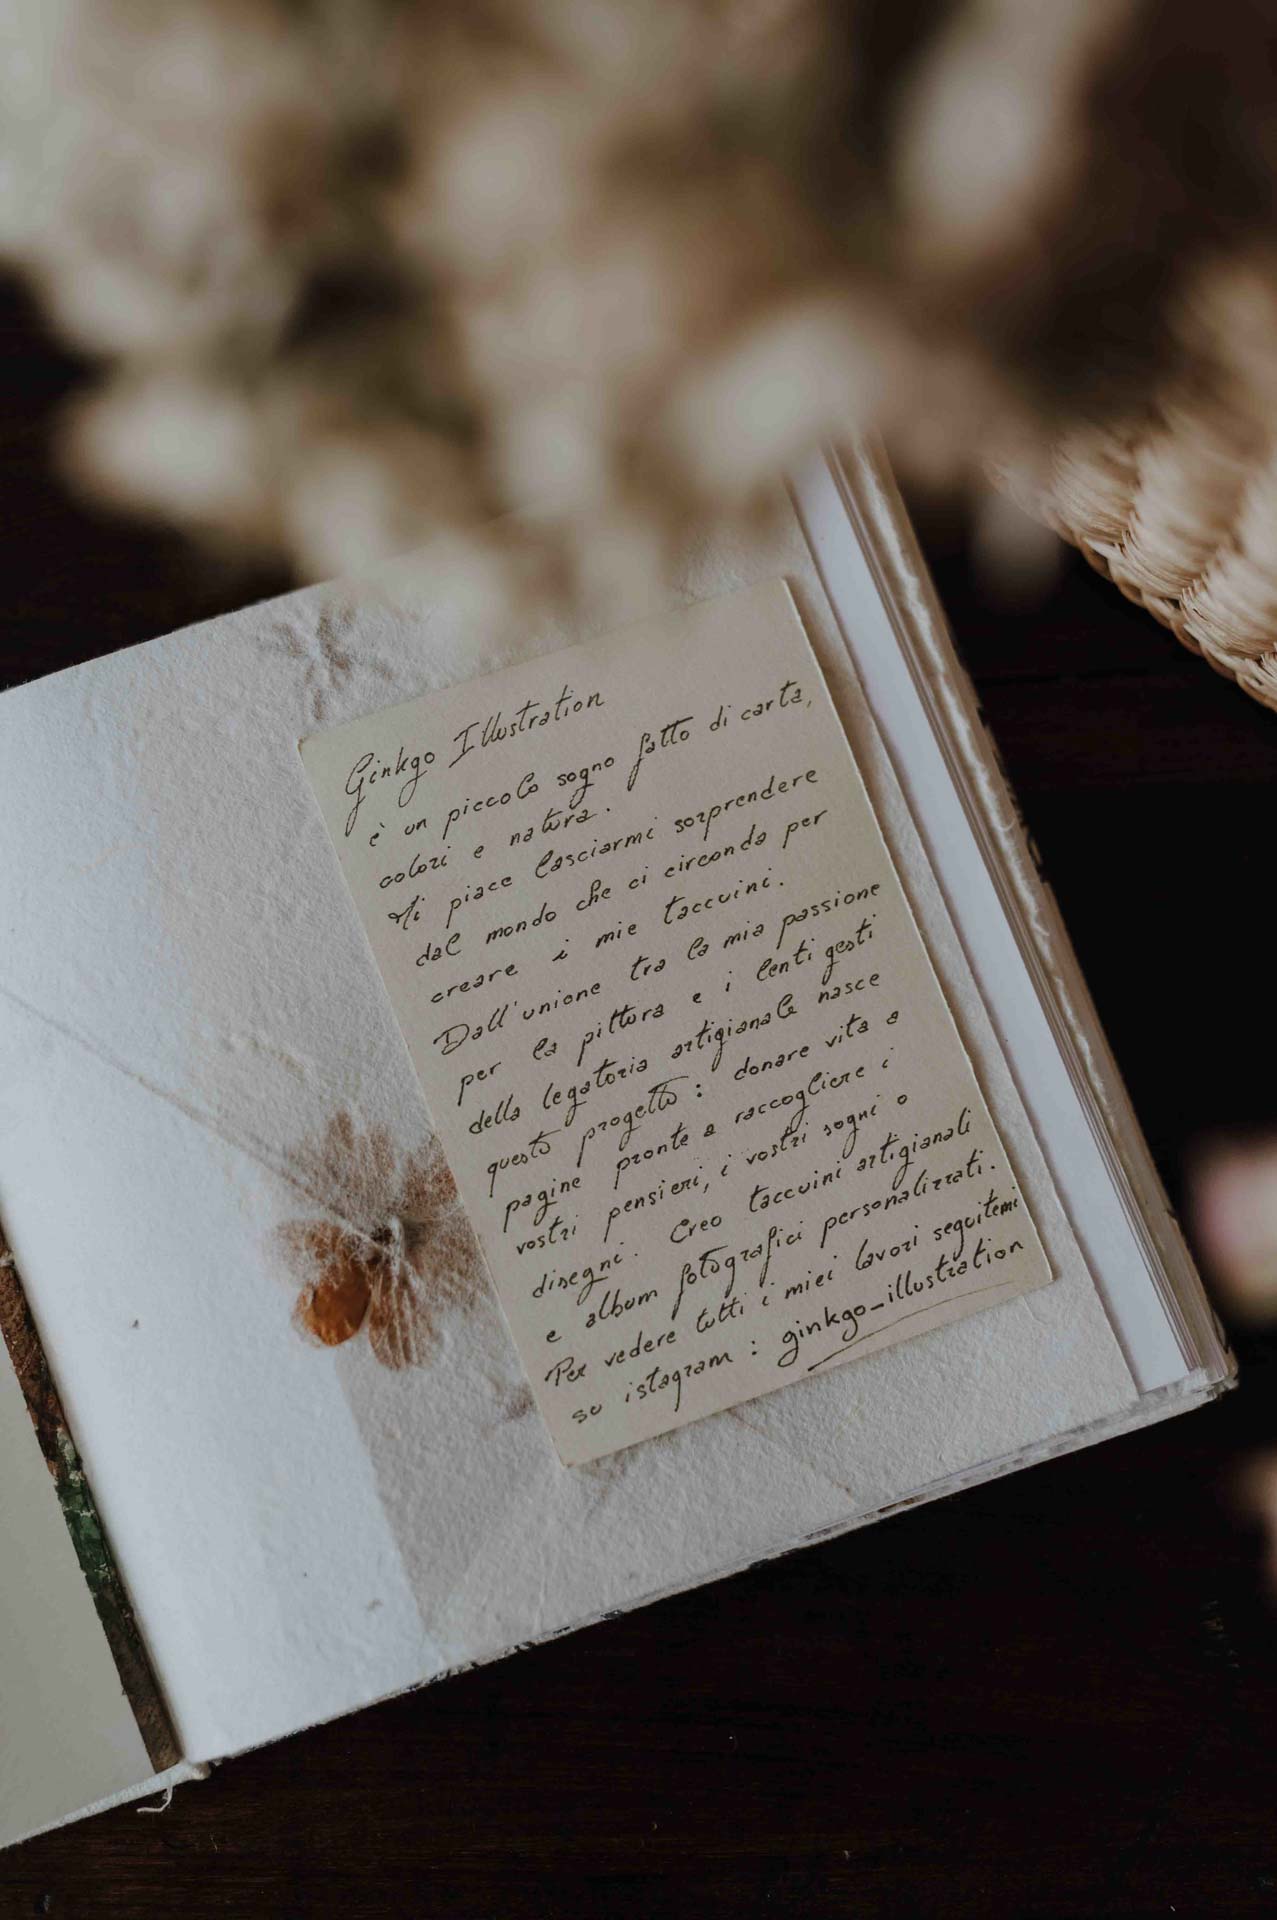 Ginkgo Illustration
è un piccolo sogno fatto di carta,
colori e natura.
Mi piace lasciarmi sorprendere
dal mondo che ci circonda per
creare i mie taccuini.
Dall'unione tra la mia passione
per la pittura e i lenti gesti
della legatoria artigianale nasce
questo progetto: donare vita a
pagine pronte a raccogliere i
vostri pensieri, i vostri sogni o
disegni. Creo taccuini artigianali
e album fotografici personalizzati.
Per vedere tutti i miei lavori seguitemi
su istagram: ginkgo_illustration